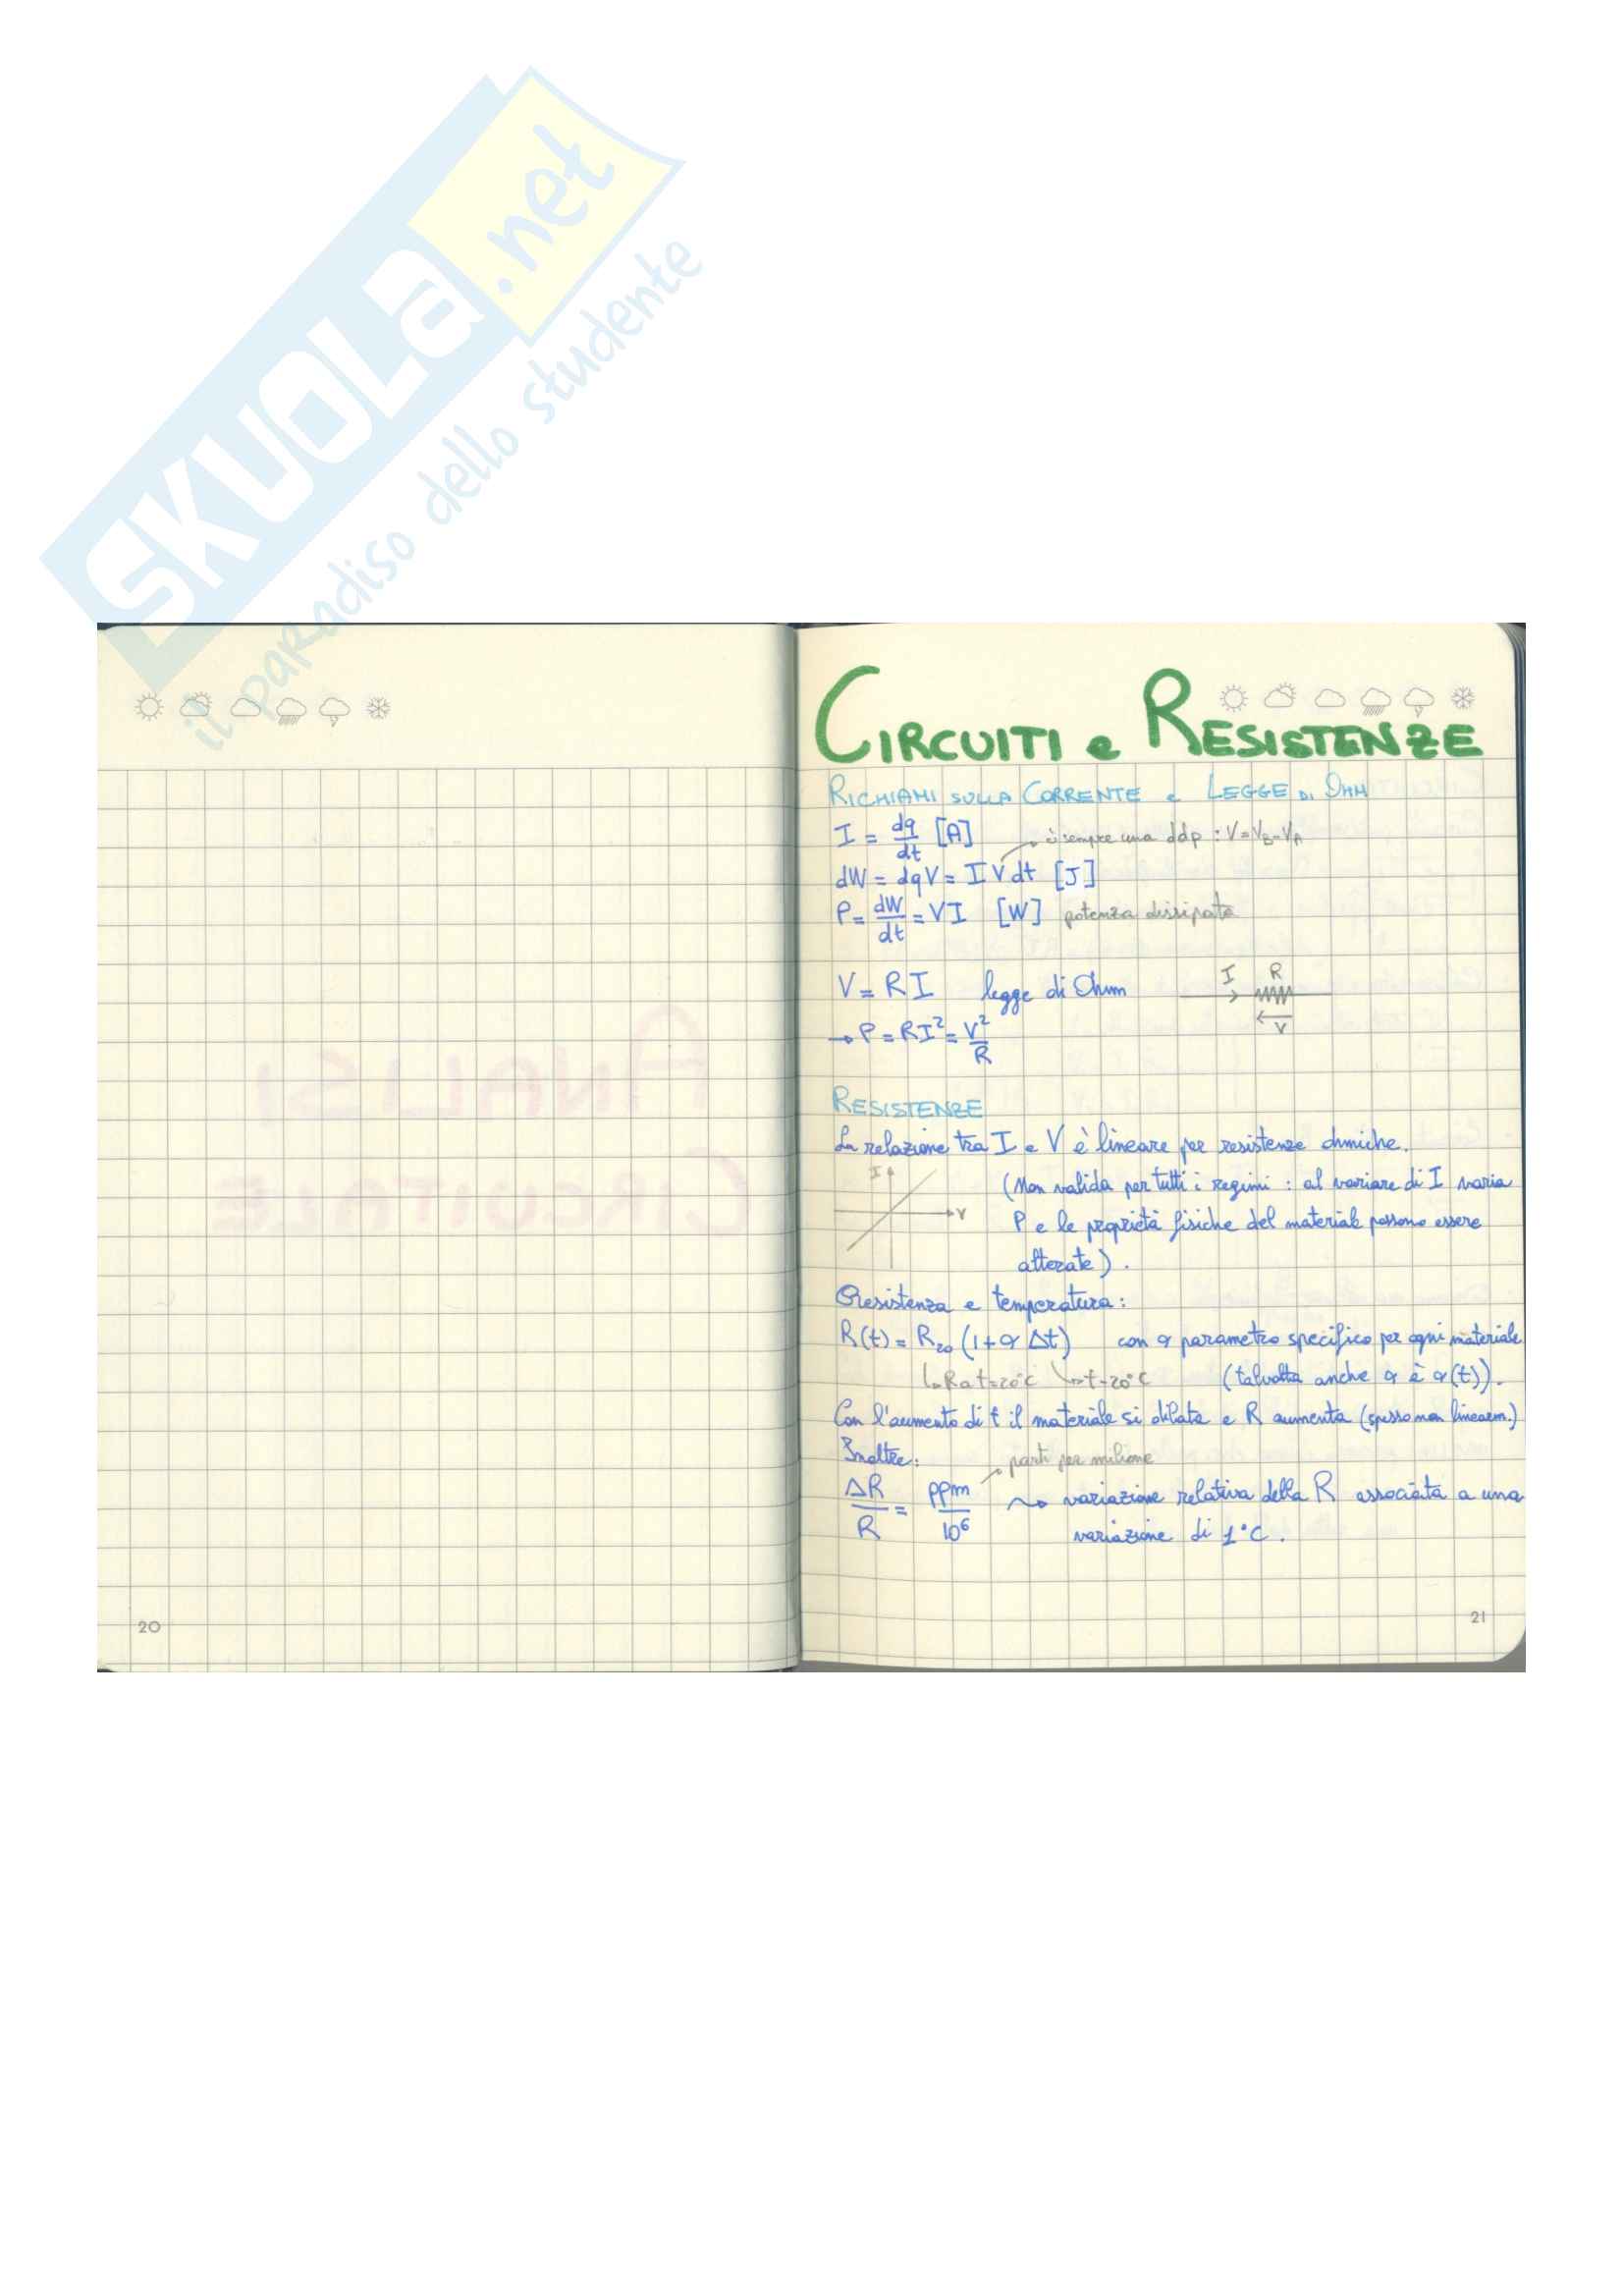 SKUOLA.net
il paradiso dello studente
CIRCUITI e RESISTENZE
RICHIAMI SULLA CORRENTE e LEGGE DI OHM
I = dq/dt [A]
è sempre una ddp : V=V_B-V_A
dW = dqV = I V dt [J]
P = dW/dt = VI [W] potenza dissipata
V = RI legge di Ohm
I R
V
→ P = RI² = V²/R
RESISTENZE
La relazione tra I e V è lineare per resistenze ohmiche.
I
V
(Non valida per tutti i regimi : al variare di I varia
P e le proprietà fisiche del materiale possono essere
alterate).
Resistenza e temperatura:
R(t) = R₂₀ (1+α Δt) con α parametro specifico per ogni materiale
↳ R a t=20°C ↳ t-20°C (talvolta anche α è α(t)).
Con l'aumento di t il materiale si dilata e R aumenta (spesso non linearm.)
Inoltre:
parti per milione
ΔR/R = ppm/10⁶ ⇝ variazione relativa della R associata a una
variazione di 1°C.
20
21
ANALISI
CIRCUITALE